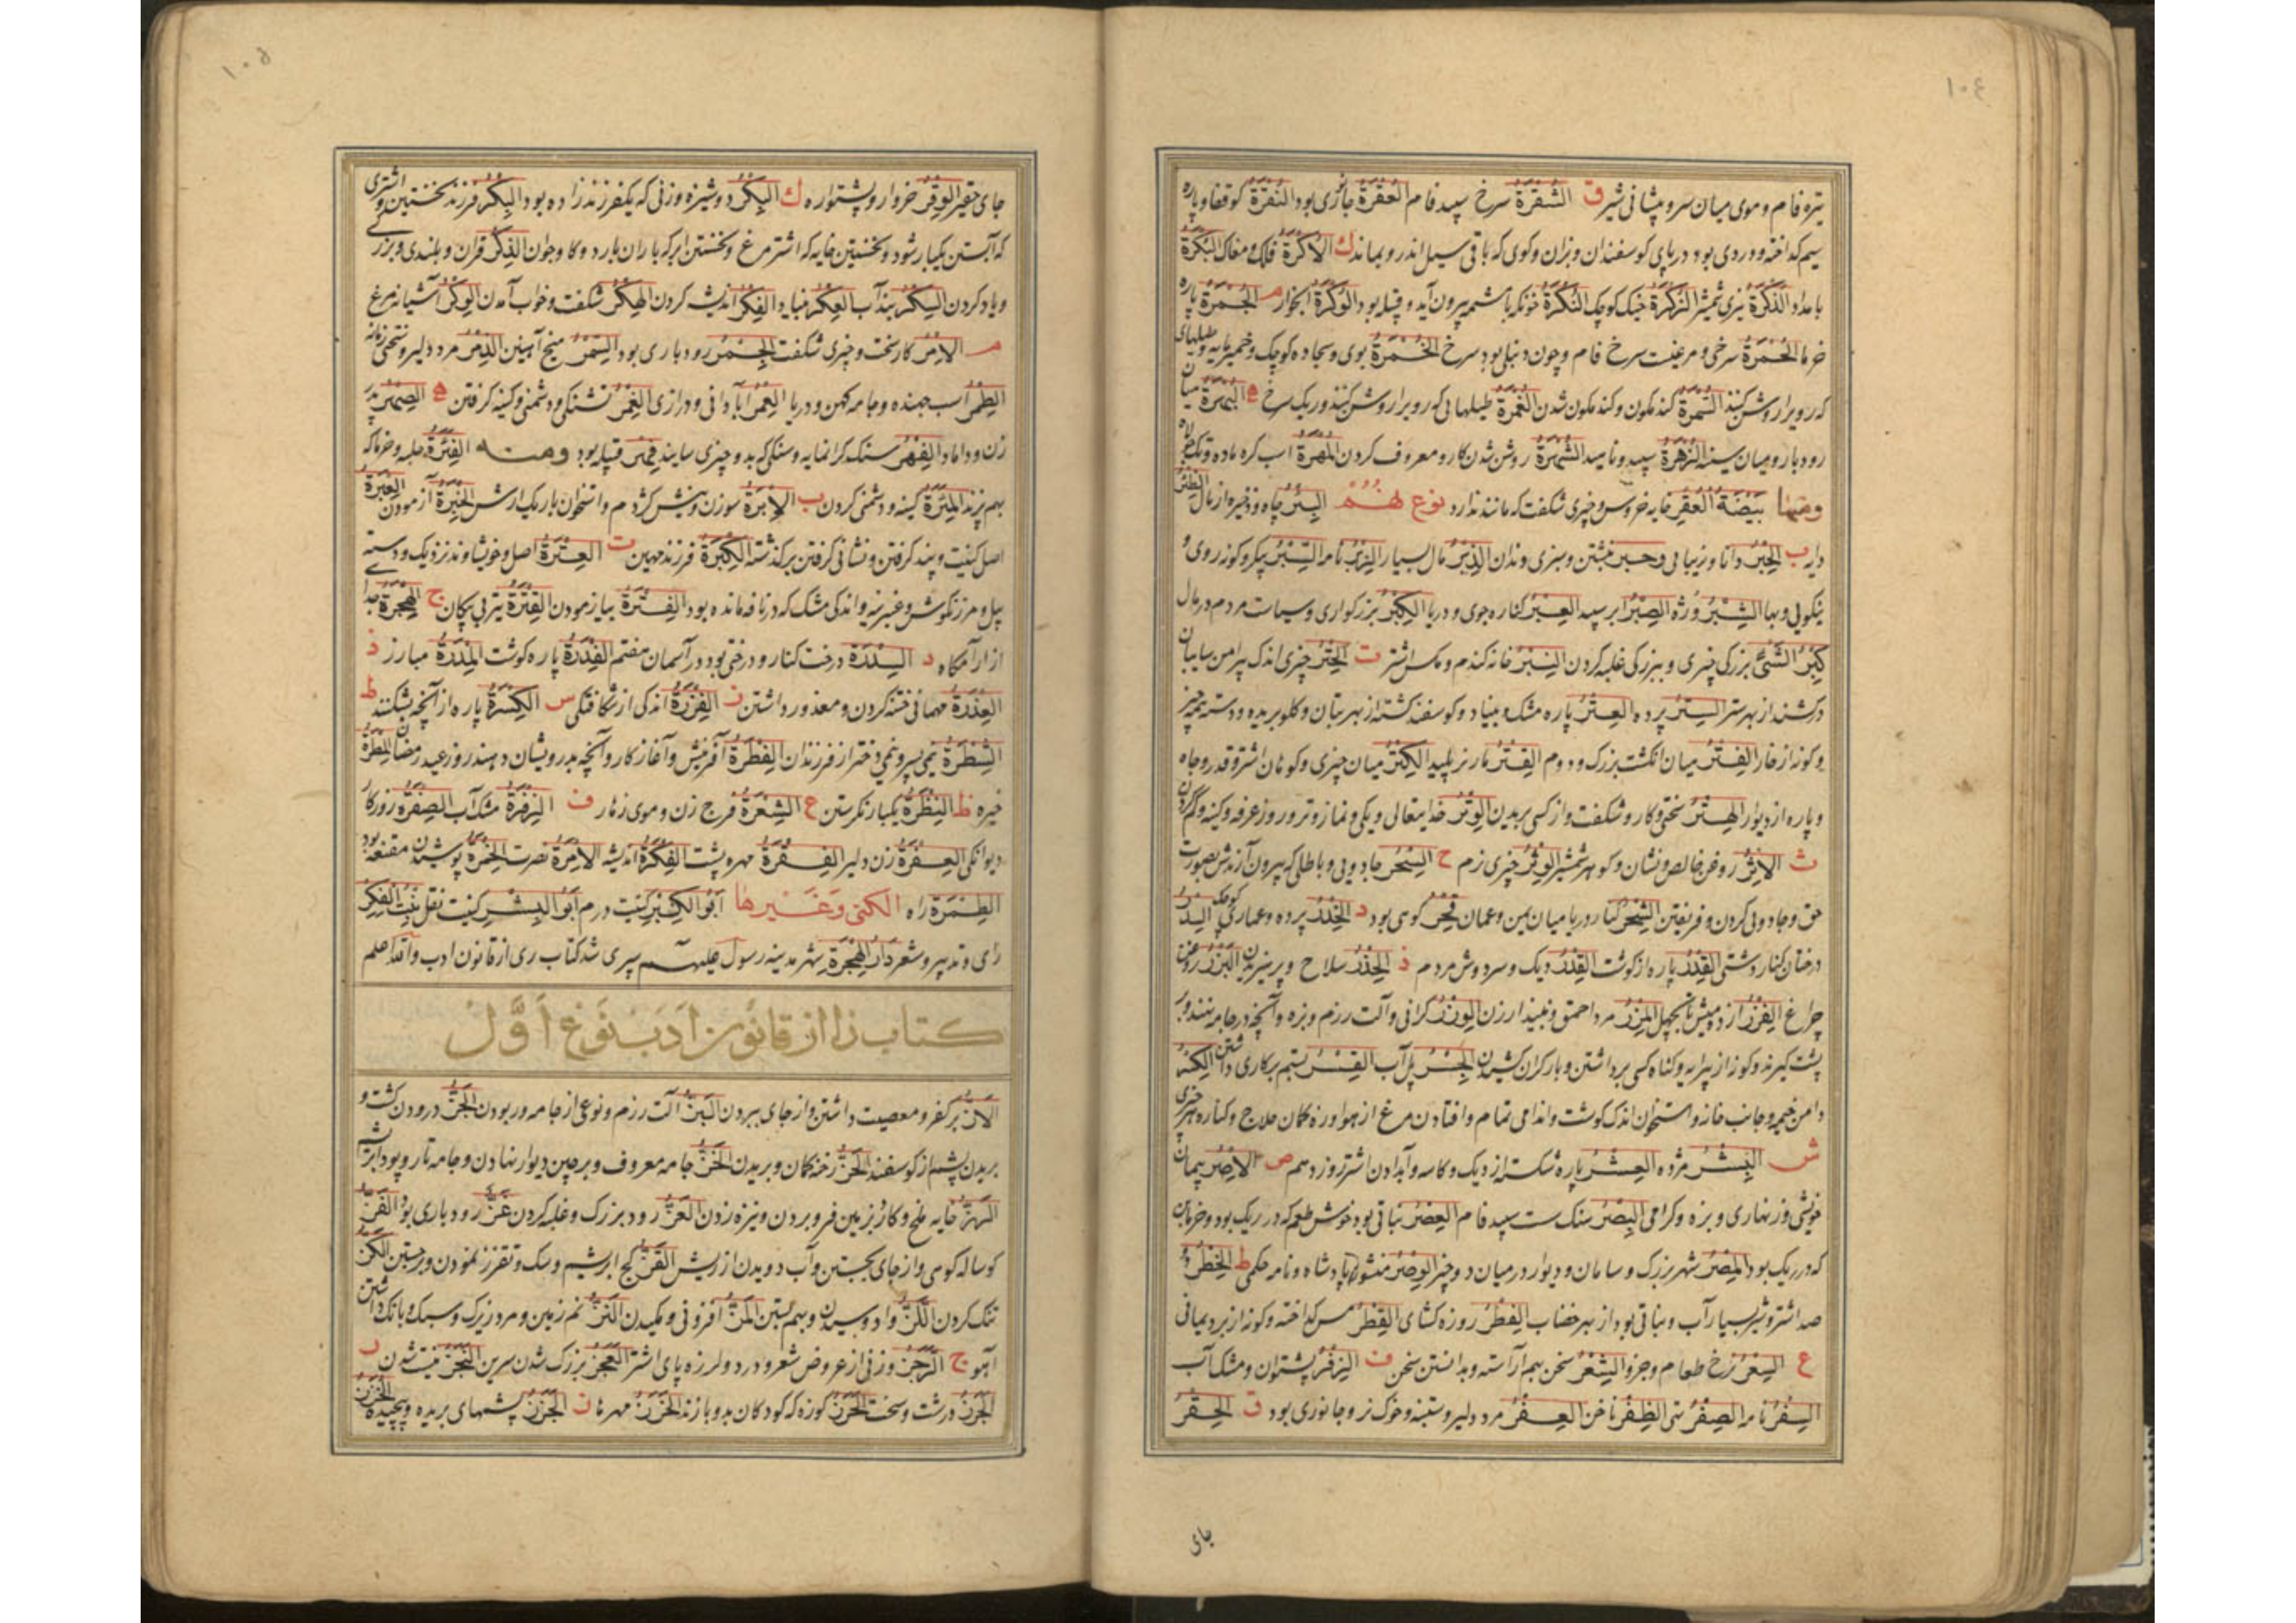 ١٠٤
تیره فام و موی میان سر و پیشانی شیر ق الشُقرَة سرخ سپید فام العُقرَة جائزی بود النُقرَة کو قفا و پاره
سیم کداخته و دردی بود در پای کوسفندان و بزان و کوی که باقی سیل اندرو بماند ك الاُکرَة فلك و مغاك البُکرَة
بامداد الذُکرَة تیزی شمشیر الزُکرَة خیک کوچک النُکرَة خونکه با شمه بیرون آید و قتله بود الوُکرَة ابخوار م الجُمرَة پاره
خرما الحُمرَة سرخی و مرغیست سرخ فام و چون دنبلی بود سرخ الخُمرَة بوی و سجاده کوچک و خمیرمایه و طلیهای
که رویرا روشن کنند السُمرَة کندمکون و کندمکون شدن الغُمرَة طلیهایی که رویرا روشن کنند و ریک سرخ ه البُهرَة میان
رودبار و میان سینه الزُهرَة سپید و ناهید الشُهرَة روشن شدن کار و معروف کردن المُهرَة اسب کره ماده
ومنها بَیضَةُ العُقرِ خایه خروس و چیزی شکفت که مانند ندارد نوع نهم البِئر چاه و ذخیره از مال الظِئر
دایه ب الحِبر دانا و زیبایی و حبر نبشتن و سبزی دندان الدِبر مال بسیار الزِبر نامه السِبر پیکر و کونه روی و
نیکویی و بها الشِبر وژه الصِبر ابر سپید العِبر کناره جوی و دریا الکِبر بزرکواری و سیاست مردم در مال
کِبرُ الشَئ بزرکی چیزی و ببزرکی غلبه کردن النِبر خانه کندم و مکس اشتر ت الحِتر چیزی اندک پیرامن سایبان
درکشند از بهر ستر السِتر پرده العِتر پاره مشک و بنیاد و کوسفند کشته از بهر بتان و کلو بریده و دسته همه چیز
و کونه از خار الفِتر میان انکشت بزرک و دوم القِتر مار نر پلید الکِتر میان چیزی و کوهان اشتر و قدر و جاه
و پاره از دیوار الهِتر سختی و کار و شکفت و از کسی بریدن الوِتر خدایتعالی و یکی و نماز وتر و روز عرفه و کینه و کم کردن
ث الاِثر روغن خالص و نشان و کوهر شمشیر الوِثر چیزی نرم ح السِحر جادویی و باطلی که بیرون آرندش بصورت
حق و جادویی کردن و فریفتن الشِحر کنار دریا میان یمن و عمان فِحر کوهی بود د الخِدر پرده و عماری کوچک السِدر
درختان کنار دشتی القِدر پاره از کوشت القِدر دیک و سر دوش مردم ذ الحِذر سلاح و پرهیزیدن البِزر روغن
چراغ الفِزر از ده میش تا بچهل المِزر مرد احمق و نبیذ ارزن الوِزر کرانی و آلت رزم و بزه و آنچه در جامه بندند و بر
پشت کیرند و کونه از پیرایه و کناه کسی برداشتن و بار کران کشیدن الجِسر پل آب القِسر بستم بر کاری داشتن الکِسر
دامن خیمه و جانب خانه و استخوان اندک کوشت و اندامی تمام و افتادن مرغ از هوا و زه کمان حلاج و کناره هر چیزی
ش البِشر مژده العِشر پاره شکسته از دیک و کاسه و آبدادن اشتر روز دهم ص الاِصر پیمان
خویشی و زنهاری و بزه و کرامی البِصر سنک ست سپید فام العِصر نباتی بود خوش طعم که در ریک بود و خرمابن
که در ریک بود المِصر شهر بزرک و سامان و دیوار در میان دو چیز الوِصر منشور پادشاه و نامه حکمی ط الخِطر دو
صد اشتر و شیر بسیار آب و نباتی بود از بهر خضاب الفِطر روزه کشای القِطر مس کداخته و کونه از برد یمانی
ع السِعر نرخ طعام و جزو الشِعر سخن بهم آراسته و بدانستن سخن ف الزِفر پشتوان و مشک آب
السِفر نامه الصِفر تهی الظِفر ناخن العِفر مرد دلیر و ستنبه و خوک نر و جانوری بود ق الحِقر
جای
١٠٥
جای حقیر الوِقر خروار و پشتواره ك البِکر دوشیزه و زنی که یکفرزند زاده بود البِکر فرزند نخستین و اشتری
که آبستن یکبار شود و نخستین خایه که اشترمرغ و نخستین ابر که باران بارد و کاو جوان الذِکر قران و بلندی و بزرکی
و یاد کردن السِکر بند آب العِکر بنیاد الفِکر اندیشه کردن الهِکر شکفت و خواب آمدن الوِکر آشیانه مرغ
م الاِمر کار سخت و چیزی شکفت الجِمر رودباری بود السِمر میخ آهنین الذِمر مرد دلیر و سختی زمانه
الطِمر اسب جهنده و جامه کهن و دریا العِمر آبادانی و درازی الغِمر تشنکی و دشمنی و کینه کرفتن ه الصِهر پدر
زن و داماد الفِهر سنک کرانمایه و سنکی که بدو چیزی سایند فِهر قبیله بود ومنه الفِئرَة حلبه و خرما که
بهم پزند المِئرَة کینه و دشمنی کردن ب الاِبرَة سوزن و نیش کژدم و استخوان باریک ارش الخِبرَة آزمودن العِبرَة
اصل کنیت و پند کرفتن و نشانی کرفتن بر کذشته الکِبرَة فرزند مهین ت العِترَة اصل و خویشاوند نزدیک و دسته
بیل و مرزنکوش و عنبرینه و اندکی مشک که در نافه مانده بود الفِترَة بیازمودن القِترَة تیر بی پیکان ج الهِجرَة جدا
از آرامگاه د السِدرَة درخت کنار و درختی بود در آسمان هفتم الفِدرَة پاره کوشت المِدرَة مبارز ذ
العِذرَة مهمانی ختنه کردن و معذور داشتن ز الفِزرَة اندکی از شکافتکی س الکِسرَة پاره از آنچه بشکنند ط
الشِطرَة نیمی پسر و نیمی دختر از فرزندان الفِطرَة آفرینش و آغاز کار و آنچه بدرویشان دهند روز عید رمضان المِطرَة
خیره ظ النِظرَة یکبار نکرستن ع الشِعرَة فرج زن و موی زهار ف الزِفرَة مشک آب الصِفرَة روزکار
دیوانکی العِفرَة زن دلیر الفِقرَة مهره پشت الفِکرَة اندیشه الاِمرَة نصرت الخِمرَة پوشیدن مقنعه بود
الطِمرَة راه الکنی وغیرها ابو الکِبر کنیت درم ابو البِشر کنیت نقل بنت الفِکر
رای و تدبیر و شعر دار الهجرة شهر مدینه رسول علیه سپری شد کتاب ری از قانون ادب والله اعلم
کتاب زا از قانون ادب نوع اول
الاَزّ بر کفر و معصیت داشتن و از جای ببردن البَزّ آلت رزم و نوعی از جامه و ربودن الجَزّ درودن کشت و
بریدن پشم از کوسفند الحَزّ رخنه کمان و بریدن الخَزّ جامه معروف و بر چین دیوار نهادن و جامه تار و پود ابریشم
الرَزّ خایه ملخ و کاژ بزمین فرو بردن و نیزه زدن العَزّ رود بزرک و غلبه کردن غَزّ رودباری بود الفَزّ
کوساله کوهی و از جای بجستن و آب دویدن از ریش القَزّ کج ابریشم و سک و تقزز نمودن و برجستن الکَزّ
تنک کردن اللَزّ وادوسیدن و بهم بستن المَزّ افزونی و مکیدن النَزّ نم زمین و مرد زیرک و سبک و بانک داشتن
آهو ج الرَجز وزنی از عروض شعر و درد و لرزه پای اشتر العَجز بزرک شدن سرین النَجز نیست شدن ر
الجَرز درشت و سخت الحَرز کوزه که کودکان بدو بازند الخَرز مهره ها ز الجَزز پشمهای بریده و پیچیده الخَزز